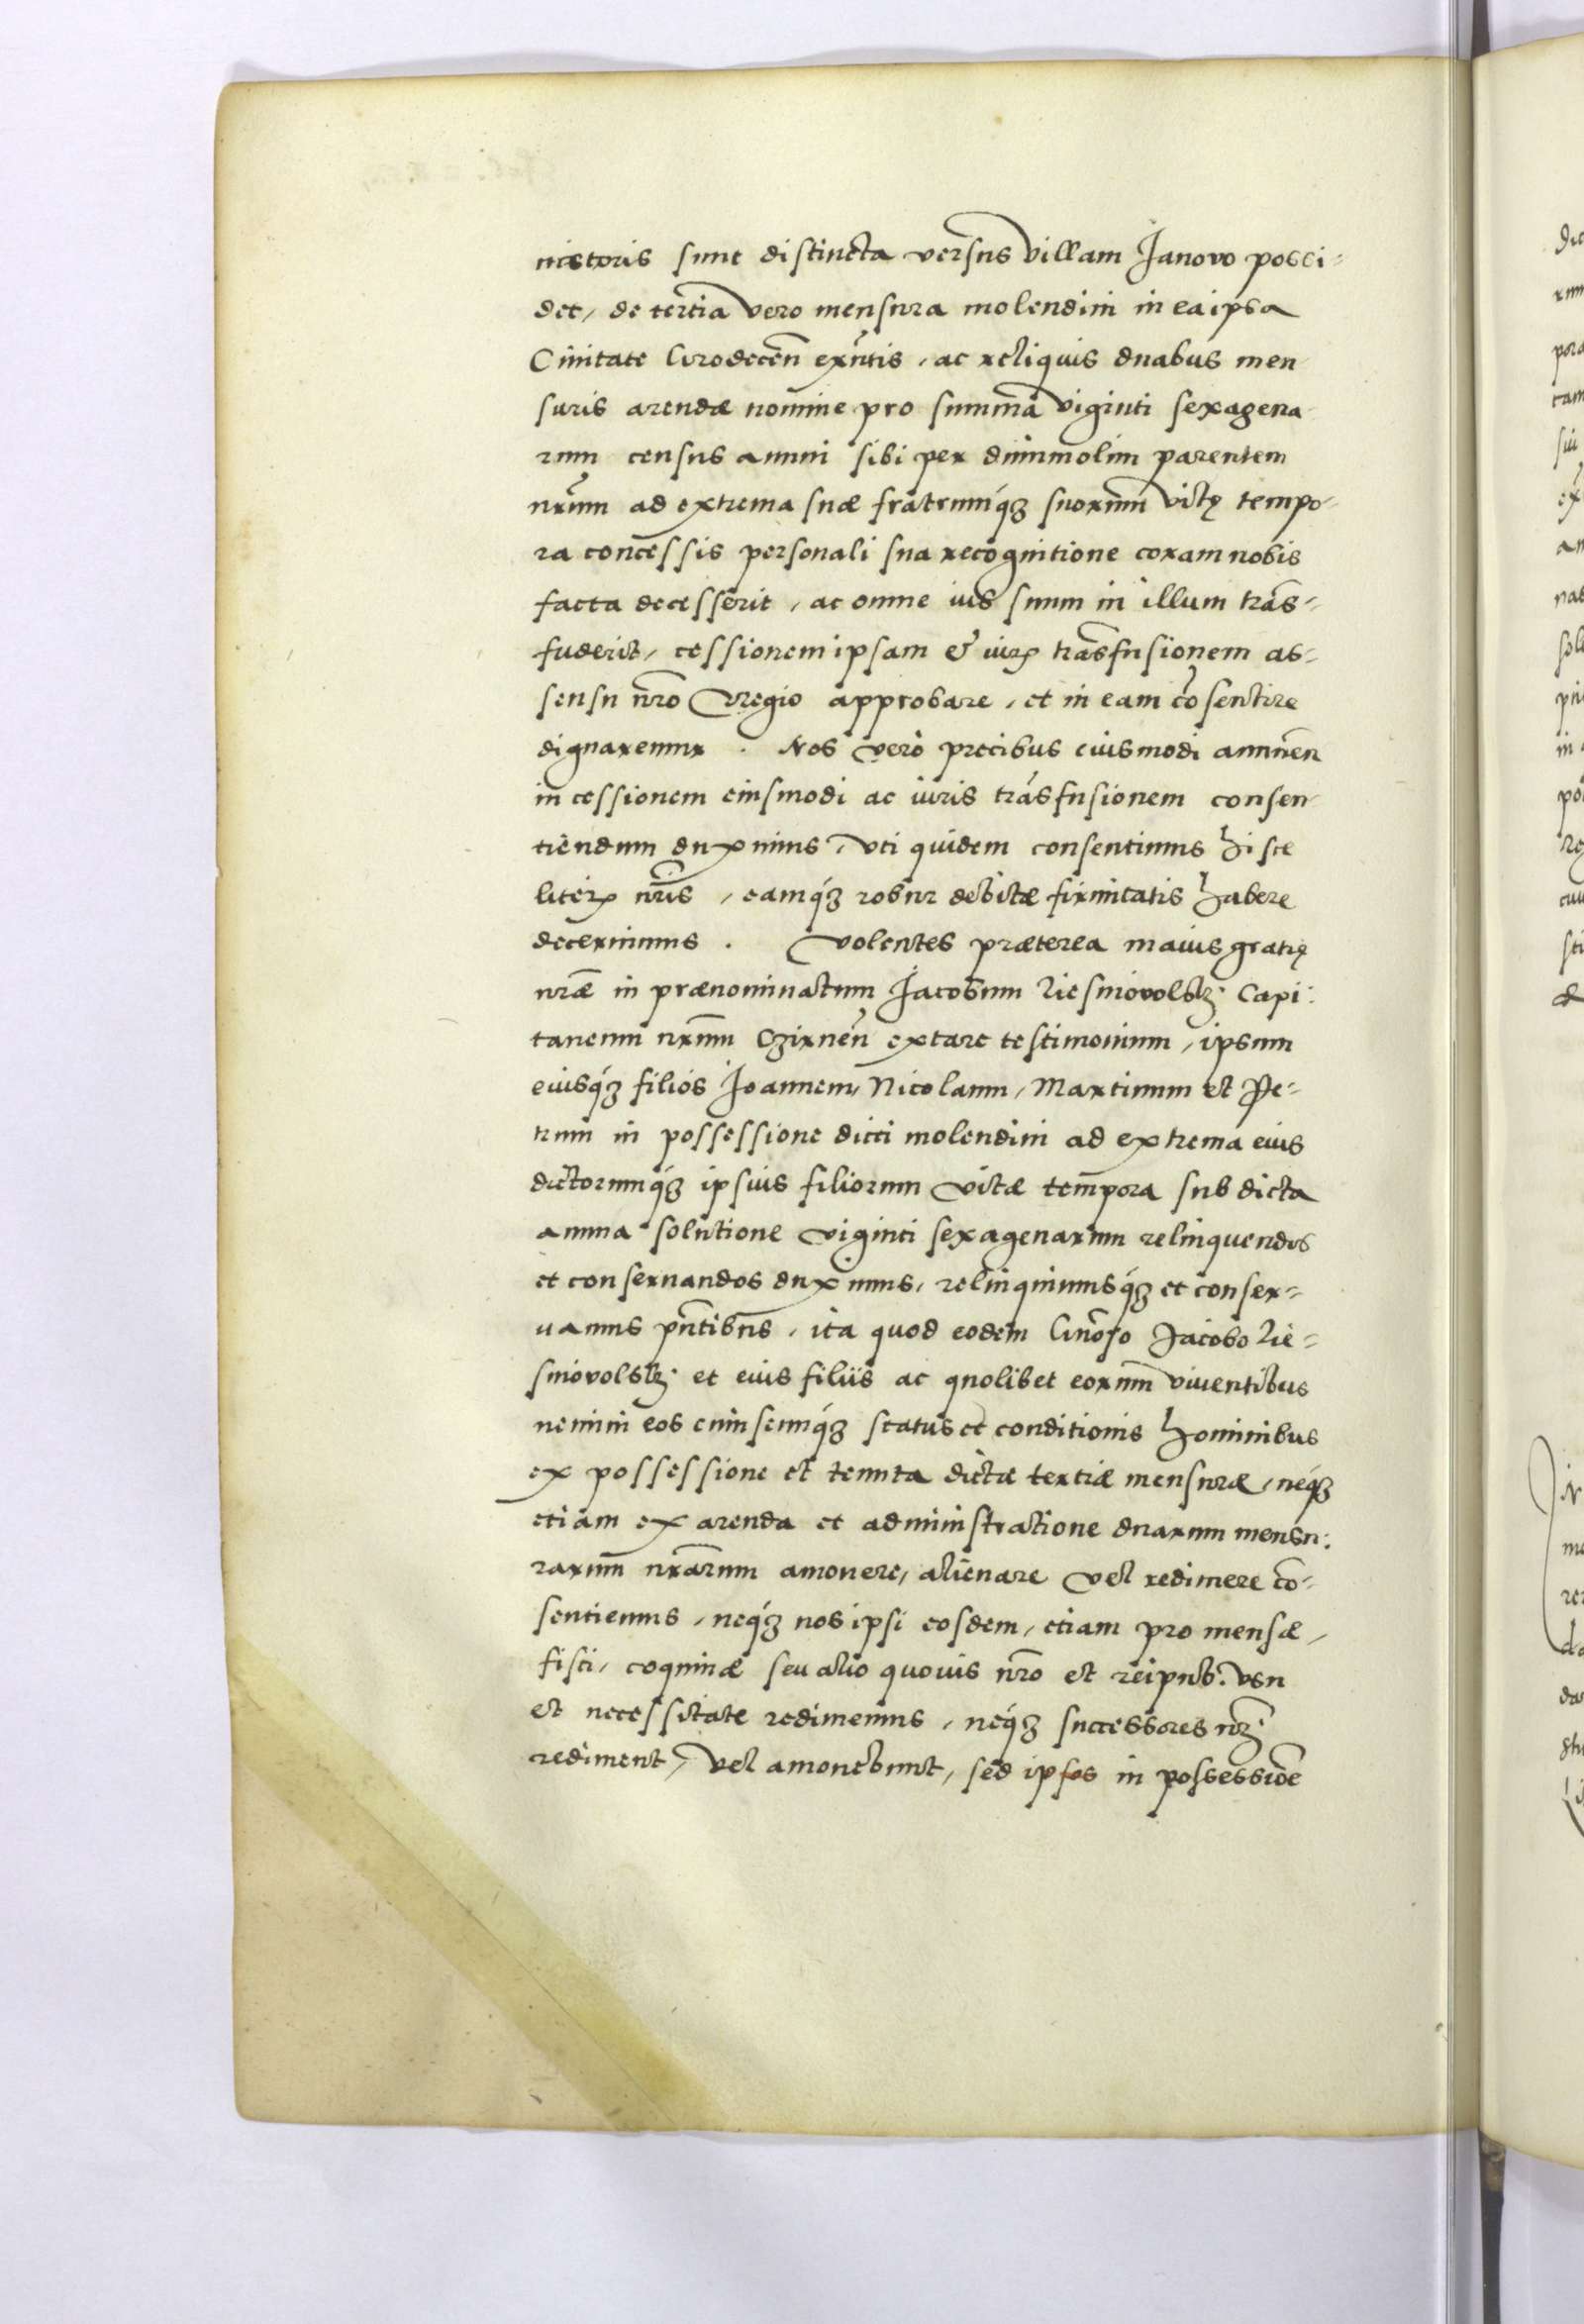 nistoris sunt distincta versus villam Janovo possi-
det, de tertia vero mensura molendini in ea ipsa
Ciuitate Grodeceñ exñtis, ac reliquis duabus men
suris arendæ nomine pro summa viginti sexagena
rum census annui sibi per diuum olim parentem
nrum ad extrema suæ fratrumq́ꝫ suorum vitę tempo-
ra concessis personali sua recognitione coram nobis
facta decesserit, ac omne ius suum in illum trãs-
fuderit, cessionem ipsam & iuris trãsfusionem as-
sensu nr̃o Regio approbare, et in eam cõsentire
dignaremur. Nos vero precibus eiusmodi annueñ
in cessionem eiusmodi ac iuris trãsfusionem consen
tiendum duximus, vti quidem consentimus hisce
literis nr̃is, eamq́ꝫ robur debitæ firmitatis habere
decernimus. Volentes præterea maius gratię
nr̃æ in prænominatum Jacobum Liesniovolskj Capi:
taneum nr̃um Czirneñ extare testimonium, ipsum
eiusq́ꝫ filios Joannem, Nicolaum, Martinum et Pe-
trum in possessione dicti molendini ad extrema eius
dictorumq́ꝫ ipsius filiorum vitæ tempora sub dicta
annua solutione viginti sexagenarum relinquendos
et conseruandos duximus, relinquimusq́ꝫ et conser-
uamus pñtibus, ita quod eodem Gnõso Jacobo Lie-
sniovolskj et eius filiis ac quolibet eorum viuentibus
nemini eos cuiuscunq́ꝫ status et conditionis hominibus
ex possessione et tenuta dictæ tertiæ mensuræ, neq́ꝫ
etiam ex arenda et administratione duarum mensu:
rarum nr̃arum amouere, alienare vel redimere cõ-
sentiemus, neq́ꝫ nos ipsi eosdem, etiam pro mensæ,
fisci, coquinæ seu alio quouis nr̃o et reipub. vsu
et necessitate redimemus, neq́ꝫ successores nr̃j
rediment, vel amouebunt, sed ipsos in possessiõe